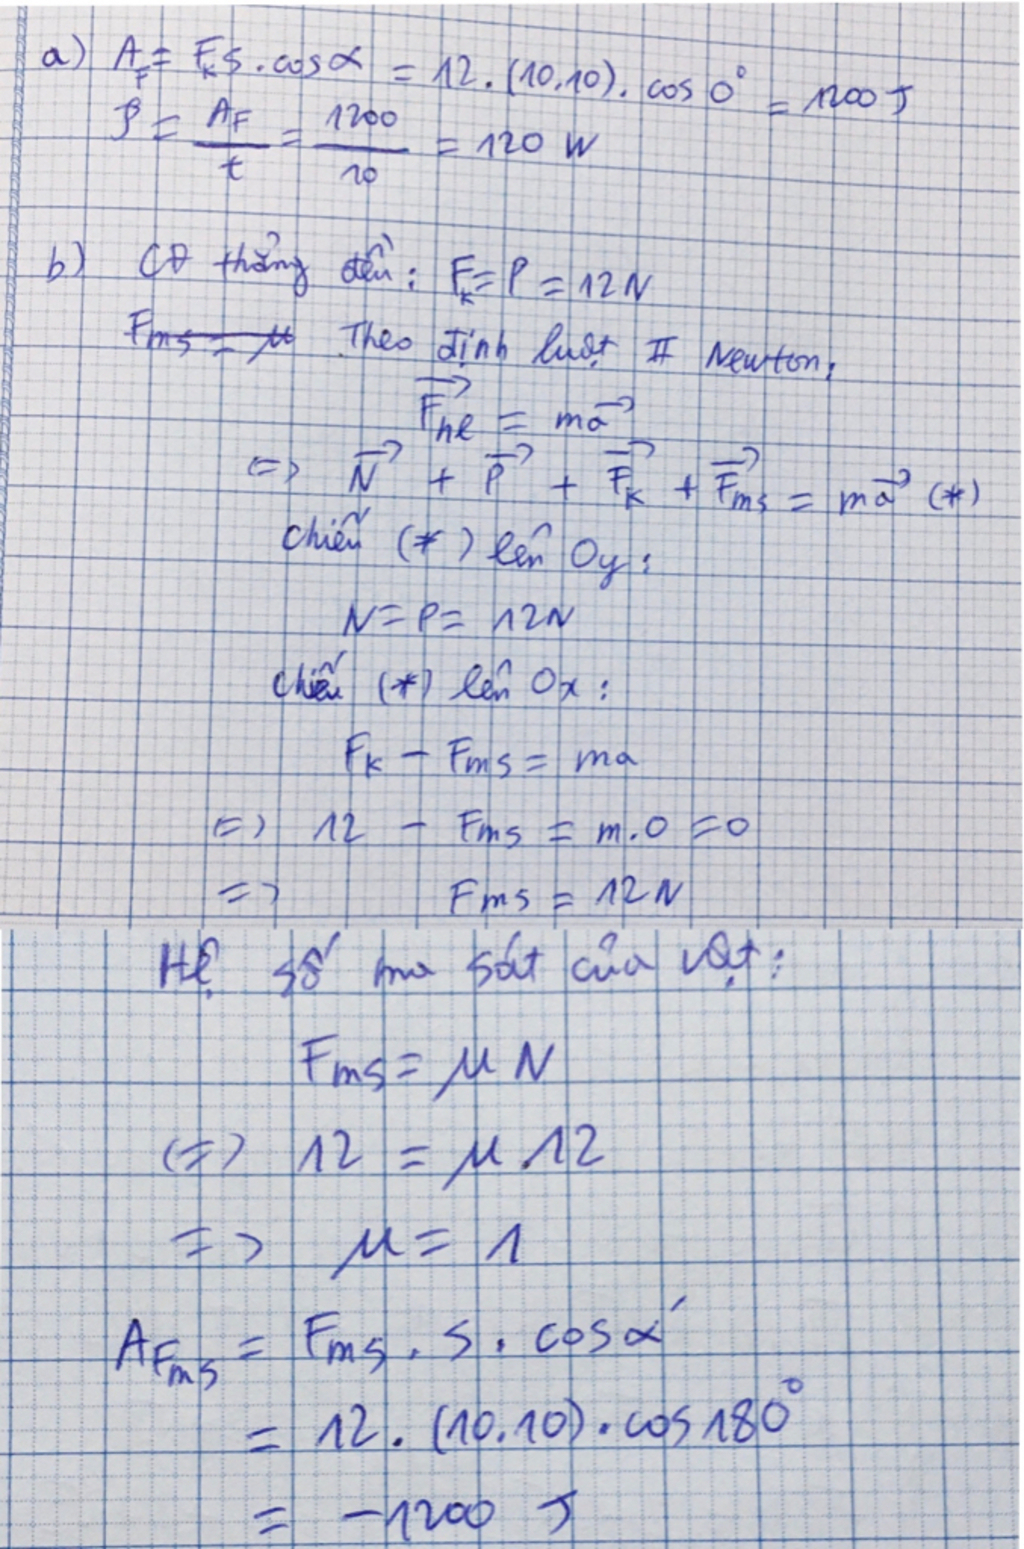 a) A_F = F_k s . cos α = 12 . (10.10) . cos 0° = 1200 J
P = A_F / t = 1200 / 10 = 120 W
b) CĐ thẳng đều : F_k = P = 12 N
F_ms = μ Theo định luật II Newton :
F_hl = ma
<=> N + P + F_k + F_ms = ma (*)
Chiếu (*) lên Oy :
N = P = 12 N
Chiếu (*) lên Ox :
F_k - F_ms = ma
<=> 12 - F_ms = m . 0 = 0
=> F_ms = 12 N
Hệ số ma sát của vật :
F_ms = μ N
<=> 12 = μ . 12
=> μ = 1
A_F_ms = F_ms . s . cos α'
= 12 . (10.10) . cos 180°
= -1200 J